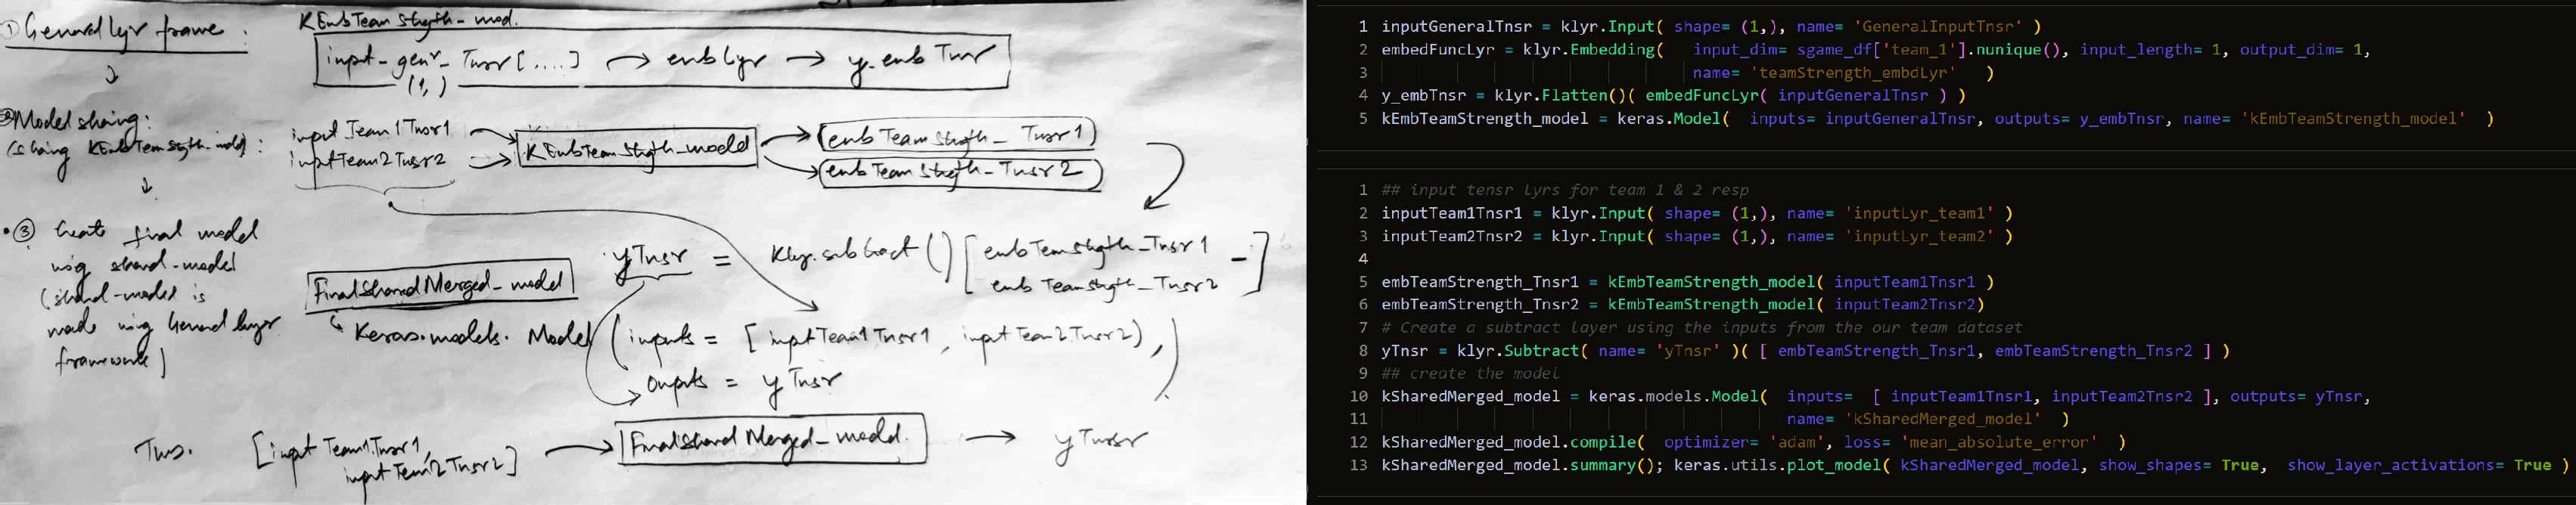 ① General lyr frame :
KEmbTeam Stregth_mod.
input_genr_Tnsr [....] → emb lyr → y_emb Tnsr
(1, )
② Model sharing:
(sharing KEmbTeamStgth_mdl) :
input Team 1 Tnsr1
inputTeam2Tnsr2
KEmbTeamStrgth_model
(emb Team Strgth_ Tnsr 1)
(emb Team Strgth_Tnsr 2)
③ Create final model
using shared-model
(shared-model is
made using General layer
framework)
yTnsr = Klyr.subtract () [ embTeamStrgth_Tnsr 1 -
emb Team Strgth_Tnsr2 ]
FinalSharedMerged_model
Keras.models. Model ( inputs = [ inputTeam1Tnsr1, inputTeam2Tnsr2),
ouputs = yTnsr )
Thus. [input Team1Tnsr1,
inputTeam2Tnsr2] → FinalSharedMerged_model. → yTnsr
1 inputGeneralTnsr = klyr.Input( shape= (1,), name= 'GeneralInputTnsr' )
2 embedFuncLyr = klyr.Embedding( input_dim= sgame_df['team_1'].nunique(), input_length= 1, output_dim= 1,
3 name= 'teamStrength_embdLyr' )
4 y_embTnsr = klyr.Flatten()( embedFuncLyr( inputGeneralTnsr ) )
5 kEmbTeamStrength_model = keras.Model( inputs= inputGeneralTnsr, outputs= y_embTnsr, name= 'kEmbTeamStrength_model' )
1 ## input tensr lyrs for team 1 & 2 resp
2 inputTeam1Tnsr1 = klyr.Input( shape= (1,), name= 'inputLyr_team1' )
3 inputTeam2Tnsr2 = klyr.Input( shape= (1,), name= 'inputLyr_team2' )
4
5 embTeamStrength_Tnsr1 = kEmbTeamStrength_model( inputTeam1Tnsr1 )
6 embTeamStrength_Tnsr2 = kEmbTeamStrength_model( inputTeam2Tnsr2)
7 # Create a subtract layer using the inputs from the our team dataset
8 yTnsr = klyr.Subtract( name= 'yTnsr' )( [ embTeamStrength_Tnsr1, embTeamStrength_Tnsr2 ] )
9 ## create the model
10 kSharedMerged_model = keras.models.Model( inputs= [ inputTeam1Tnsr1, inputTeam2Tnsr2 ], outputs= yTnsr,
11 name= 'kSharedMerged_model' )
12 kSharedMerged_model.compile( optimizer= 'adam', loss= 'mean_absolute_error' )
13 kSharedMerged_model.summary(); keras.utils.plot_model( kSharedMerged_model, show_shapes= True, show_layer_activations= True )